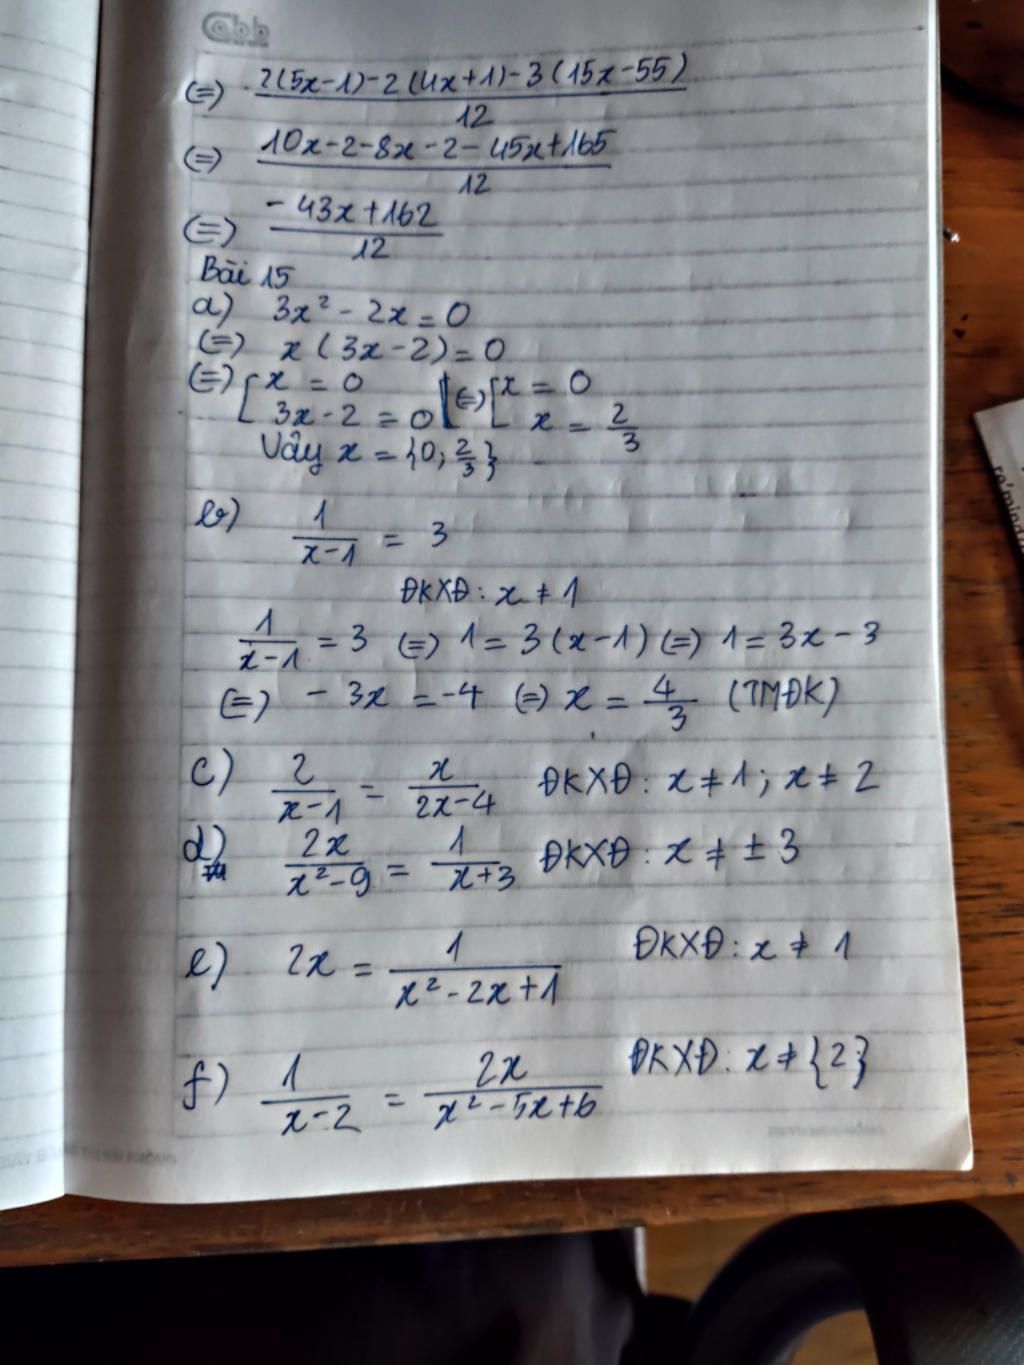 (=) 2(5x-1)-2(4x+1)-3(15x-55) / 12
(=) 10x-2-8x-2-45x+165 / 12
(=) -43x+162 / 12
Bài 15
a) 3x² - 2x = 0
(=) x(3x-2) = 0
(=) [ x = 0 ; 3x-2 = 0 (=) [ x = 0 ; x = 2/3
Vậy x = {0; 2/3}
b) 1/(x-1) = 3
ĐKXĐ: x ≠ 1
1/(x-1) = 3 (=) 1 = 3(x-1) (=) 1 = 3x-3
(=) -3x = -4 (=) x = 4/3 (TMĐK)
c) 2/(x-1) = x/(2x-4) ĐKXĐ: x ≠ 1; x ≠ 2
d) 2x/(x²-9) = 1/(x+3) ĐKXĐ: x ≠ ±3
e) 2x = 1/(x²-2x+1) ĐKXĐ: x ≠ 1
f) 1/(x-2) = 2x/(x²-5x+6) ĐKXĐ: x ≠ {2}